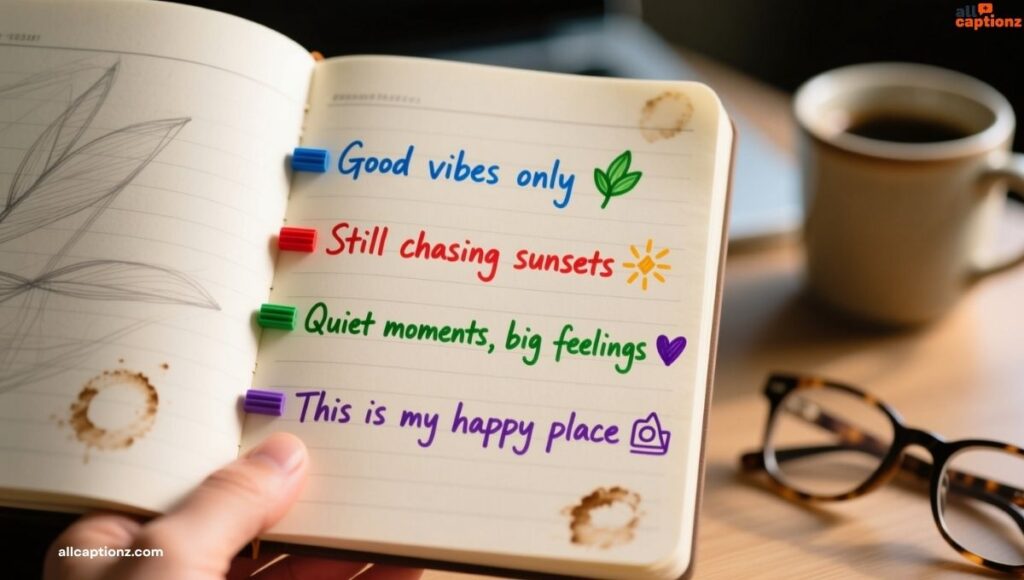 all
captionz
Good vibes only
Still chasing sunsets
Quiet moments, big feelings
This is my happy place
allcaptionz.com